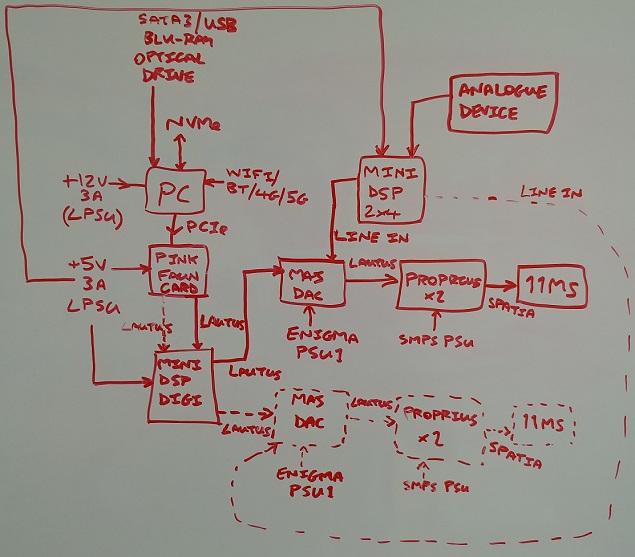 SATA3/USB
BLU-RAY
OPTICAL
DRIVE
NVMe
ANALOGUE
DEVICE
+12V
3A
(LPSU)
PC
WIFI/
BT/4G/5G
MINI
DSP
2x4
LINE IN
PCIe
LINE IN
+5V
3A
LPSU
PINK
FAUN
CARD
MAS
DAC
LAUTUS
PROPRIUS
x2
SPATIA
11MS
LAUTUS
LAUTUS
ENIGMA
PSU1
SMPS PSU
MINI
DSP
DIGI
LAUTUS
LAUTUS
MAS
DAC
LAUTUS
PROPRIUS
x2
11MS
SPATIA
ENIGMA
PSU1
SMPS PSU